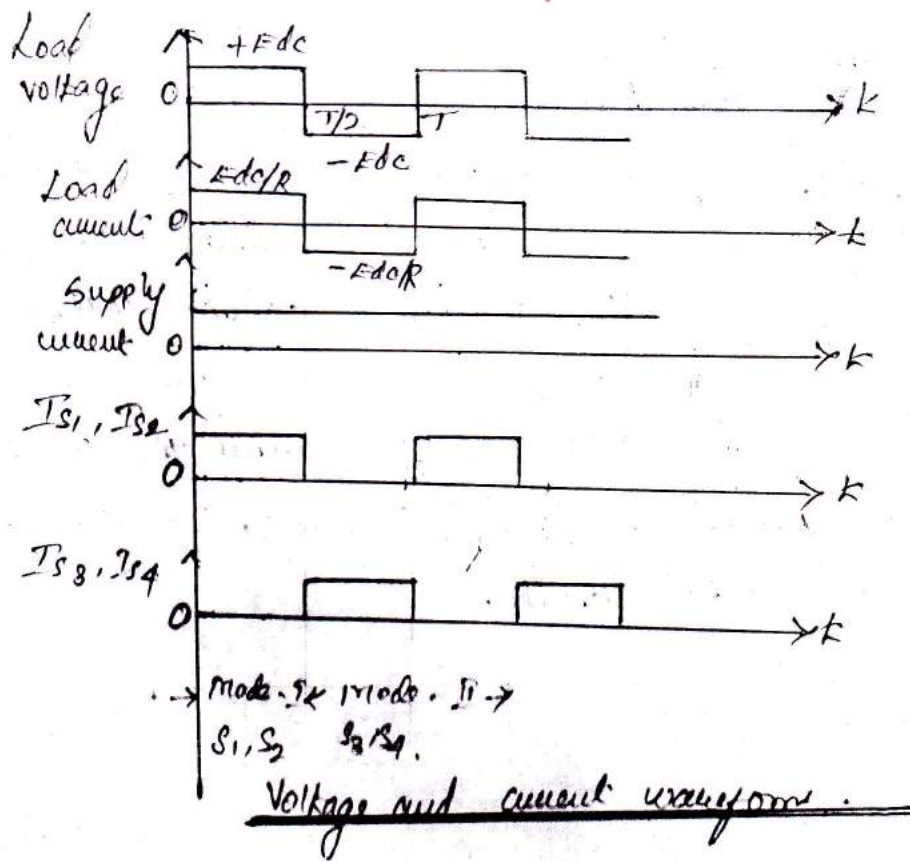 Load voltage
+Edc
0
T/2
T
-Edc
t
Load current
Edc/R
0
-Edc/R
t
Supply current
0
t
Is1, Is2
0
t
Is3, Is4
0
t
Mode-I Mode-II
S1, S2 S3, S4.
Voltage and current waveform.